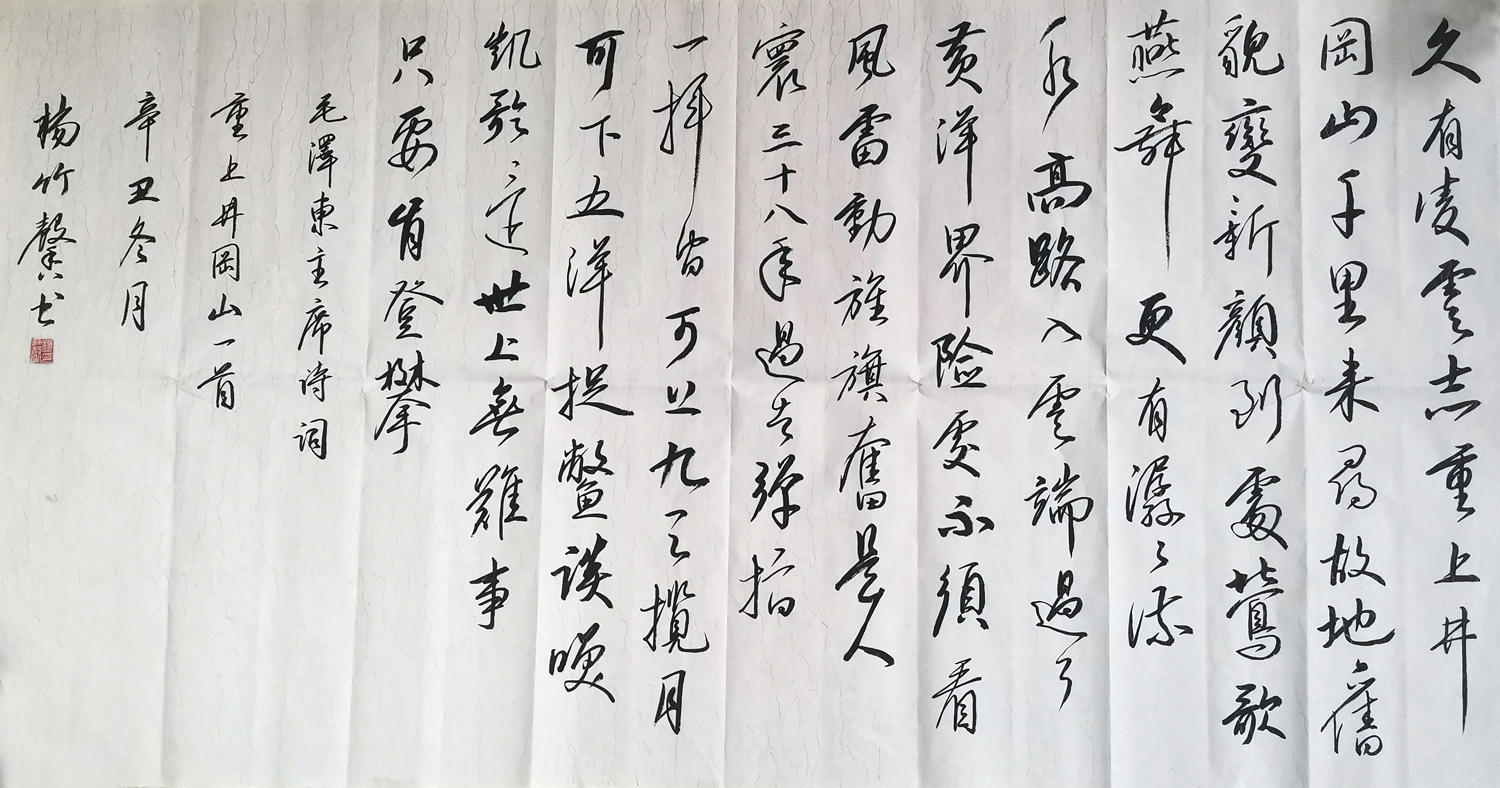 久有凌雲志重上井
岡山千里来尋故地舊
貌變新顔到處鶯歌
燕舞更有潺々流
水高路入雲端過了
黄洋界險處不須看
風雷動旌旗奮是人
寰三十八年過去彈指
一揮皆可上九天攬月
可下五洋捉鱉談唤
凱歌還世上無難事
只要肯登攀
毛澤東主席诗词
重上井岡山一首
辛丑冬月
楊竹馨书